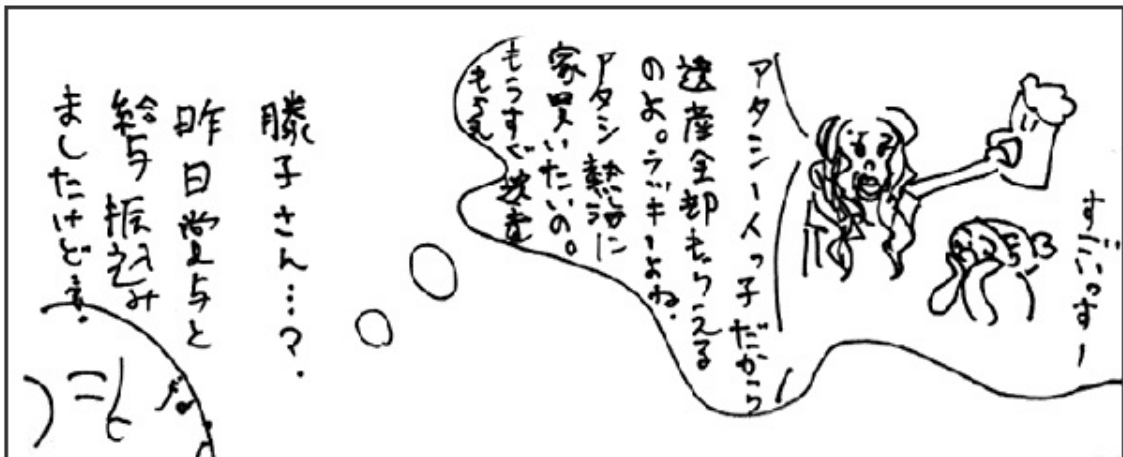 すごいっすー
アタシ一人っ子だから
遺産全部もらえる
のよ。ラッキーよね。
アタシ熱海に
家買いたいの。
もうすぐ遺産
もらえ
藤子さん…?
昨日賞与と
給与振込み
ましたけど…。